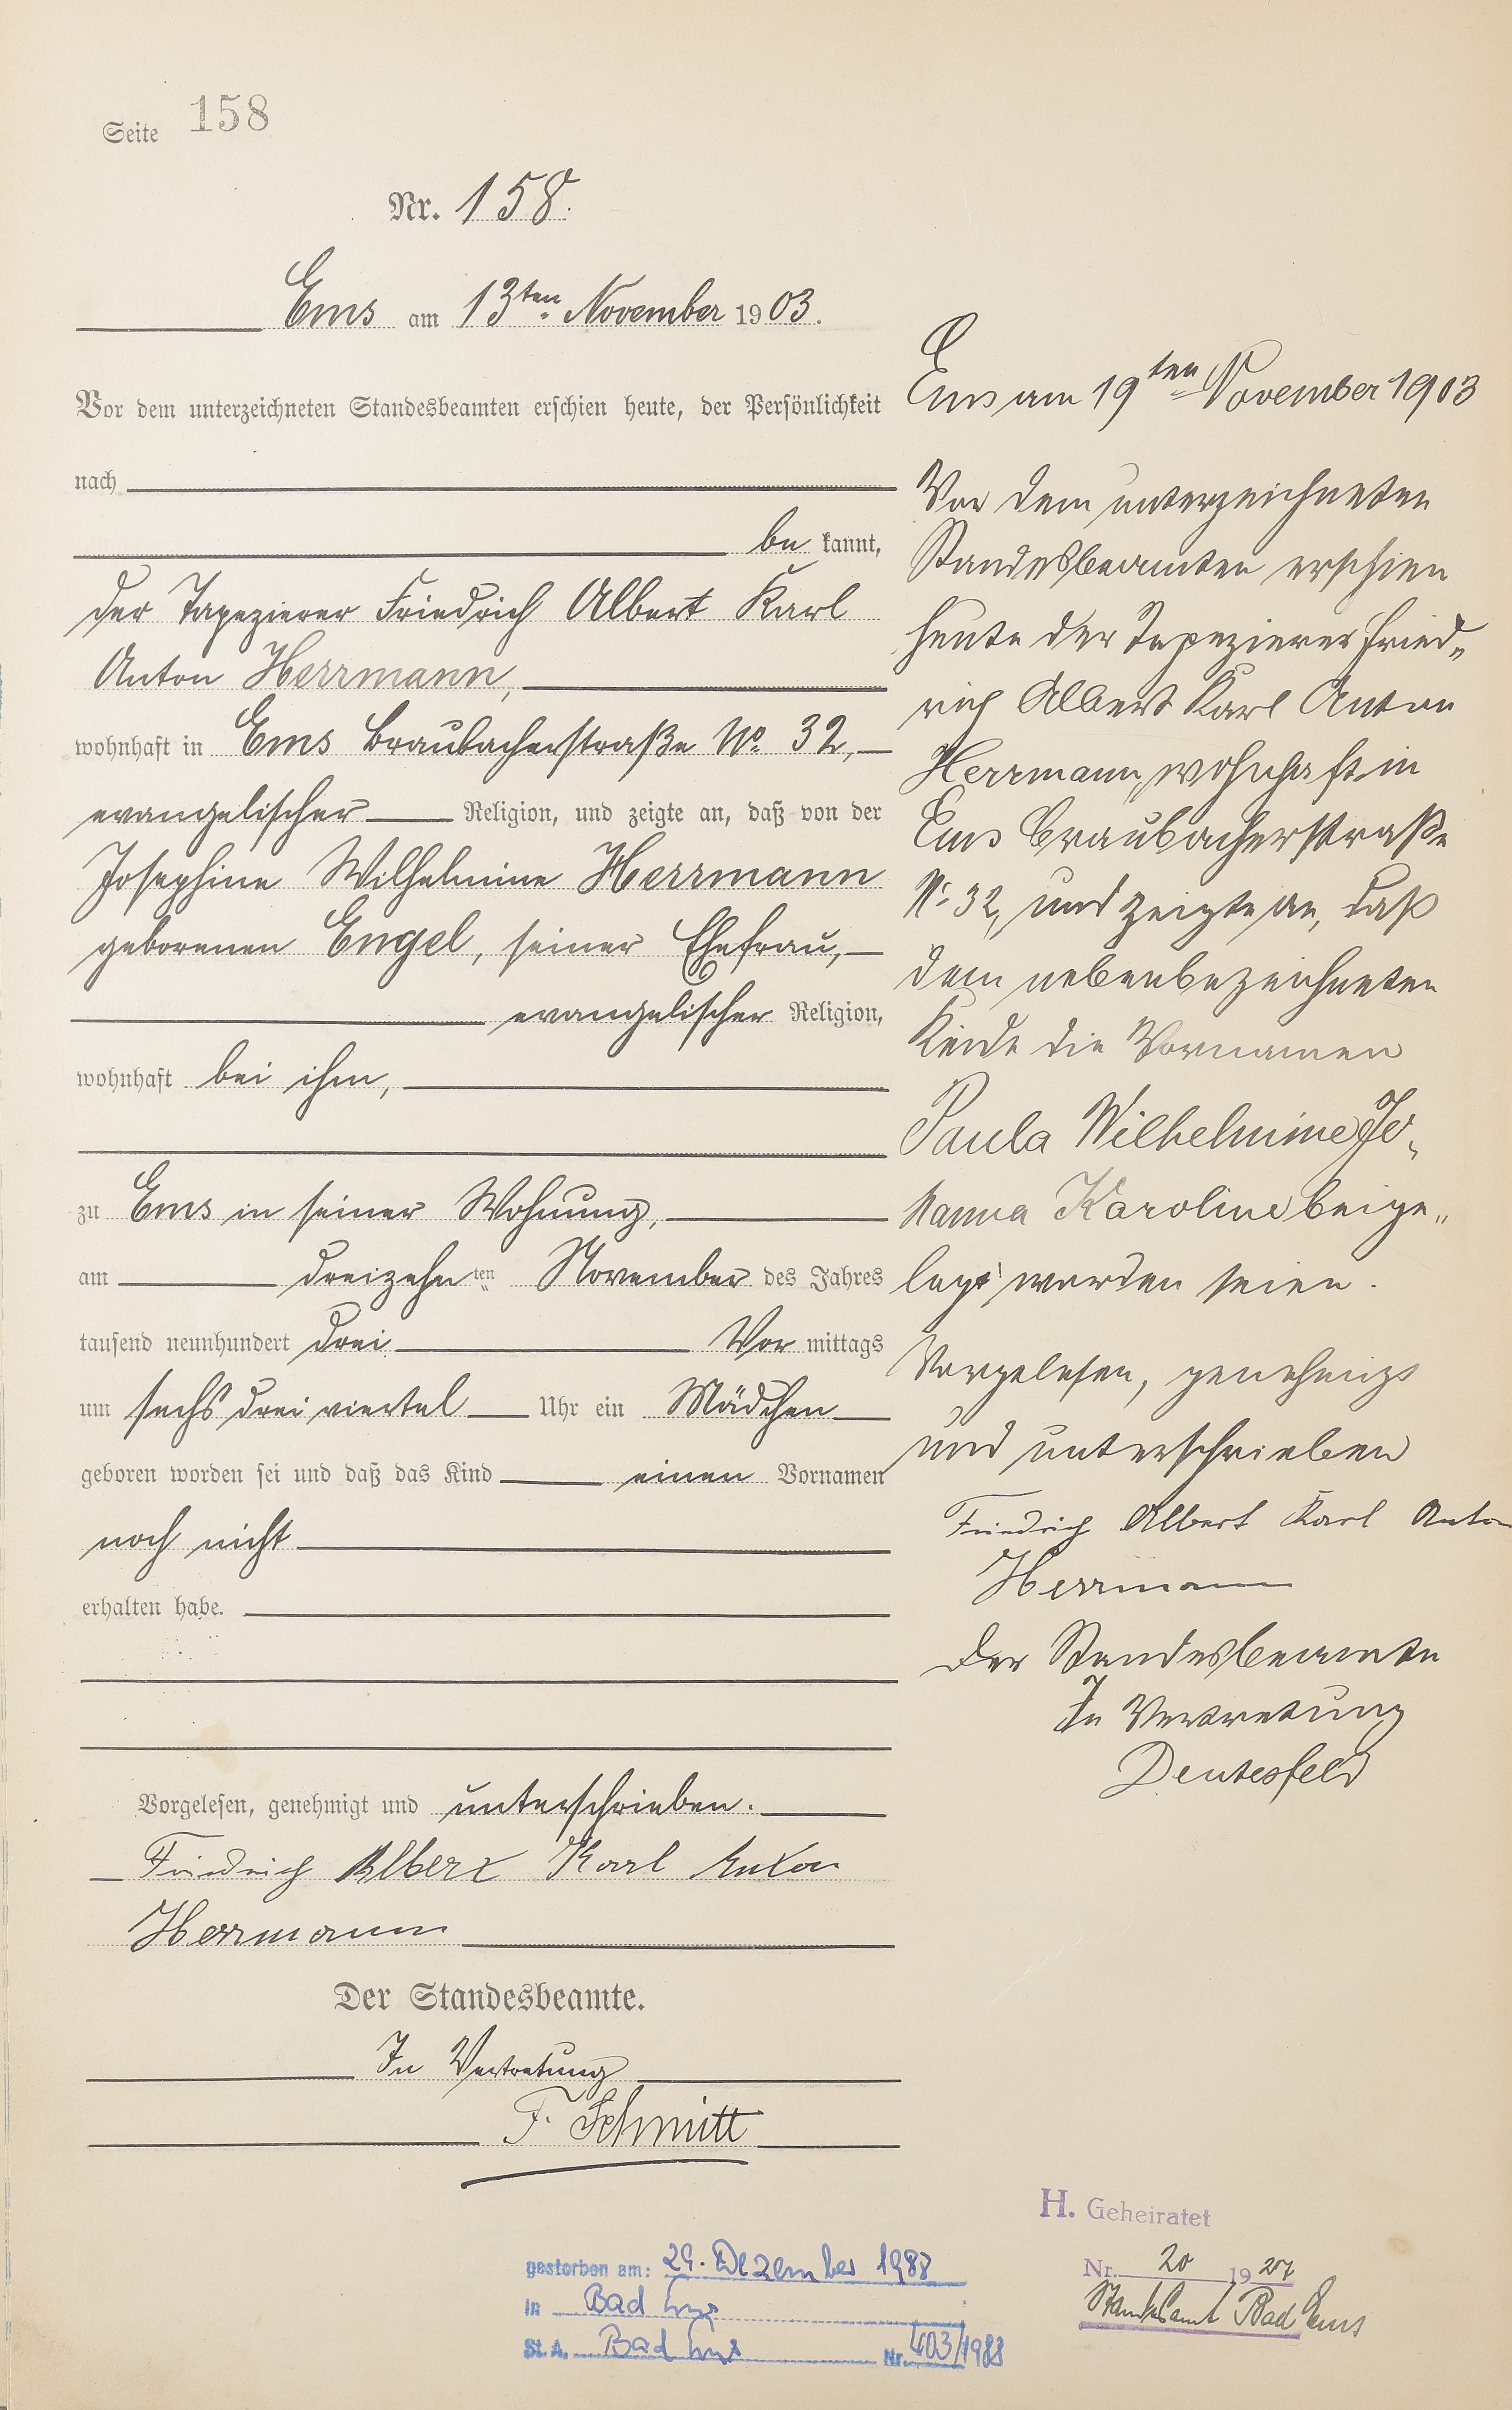 Seite 158
Nr. 158.
Ems am 13ten November 1903.
Vor dem unterzeichneten Standesbeamten erschien heute, der Persönlichkeit
nach
be kannt,
der Tapezierer Friedrich Albert Karl
Anton Herrmann,
wohnhaft in Ems Braubacherstraße No. 32,
evangelischer Religion, und zeigte an, daß von der
Josephine Wilhelmine Herrmann
geborenen Engel, seiner Ehefrau,
evangelischer Religion,
wohnhaft bei ihm,
zu Ems in seiner Wohnung,
am dreizehnten November des Jahres
tausend neunhundert drei Vor mittags
um sechs drei viertel Uhr ein Mädchen
geboren worden sei und daß das Kind einen Vornamen
noch nicht
erhalten habe.
Vorgelesen, genehmigt und unterschrieben.
Friedrich Albert Karl Anton
Herrmann
Der Standesbeamte.
In Vertretung
F. Schmitt
Ems am 19ten November 1903
Vor dem unterzeichneten
Standesbeamten erschien
heute der Tapezierer Fried„
rich Albert Karl Anton
Herrmann, wohnhaft in
Ems Braubacherstraße
No 32, und zeigte an, daß
dem nebenbezeichneten
Kinde die Vornamen
Paula Wilhelmine Jo„
hanna Karoline beige„
legt worden seien.
Vorgelesen, genehmigt
und unterschrieben
Friedrich Albert Karl Anton
Herrmann
Der Standesbeamte
In Vertretung
Deutesfeld
gestorben am: 29. Dezember 1988
in Bad Ems
St. A. Bad Ems Nr. 403/1988
H. Geheiratet
Nr. 20 1927
Standesamt Bad Ems